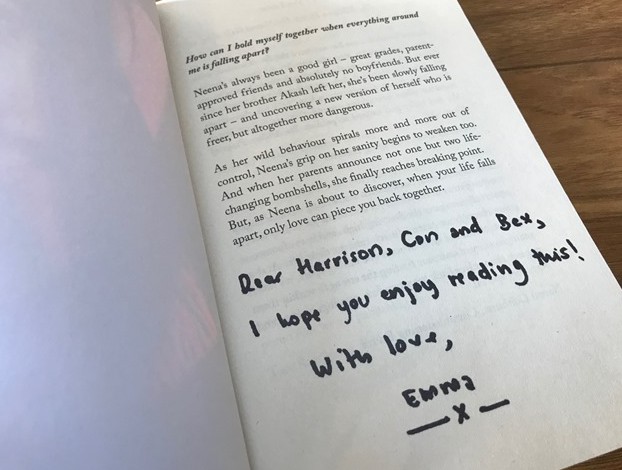 How can I hold myself together when everything around
me is falling apart?
Neena's always been a good girl – great grades, parent-
approved friends and absolutely no boyfriends. But ever
since her brother Akash left her, she's been slowly falling
apart – and uncovering a new version of herself who is
freer, but altogether more dangerous.
As her wild behaviour spirals more and more out of
control, Neena's grip on her sanity begins to weaken too.
And when her parents announce not one but two life-
changing bombshells, she finally reaches breaking point.
But, as Neena is about to discover, when your life falls
apart, only love can piece you back together.
Dear Harrison, Con and Bex,
I hope you enjoy reading this!
With love,
Emma
— X —